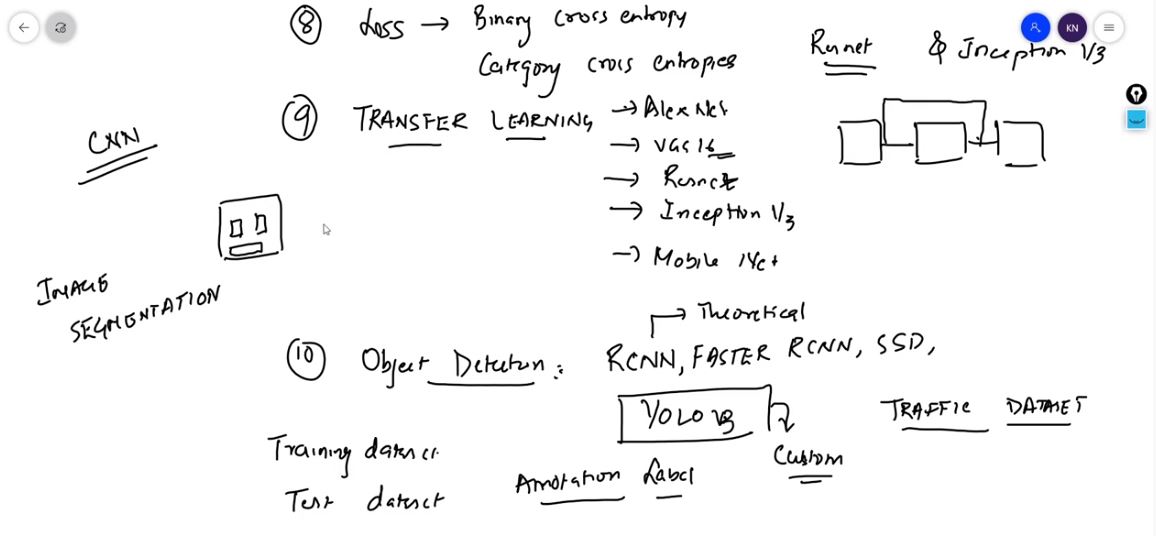 KN
⑧ Loss → Binary cross entropy
Category cross entropies
Resnet & Inception V3
⑨ TRANSFER LEARNING → AlexNet
→ VGG 16
→ Resnet
→ Inception V3
→ Mobile Net
CNN
IMAGE
SEGMENTATION
→ Theoretical
⑩ Object Detection : RCNN, FASTER RCNN, SSD,
YOLO V3
TRAFFIC DATASET
Custom
Training dataset
Test dataset
Annotation Label